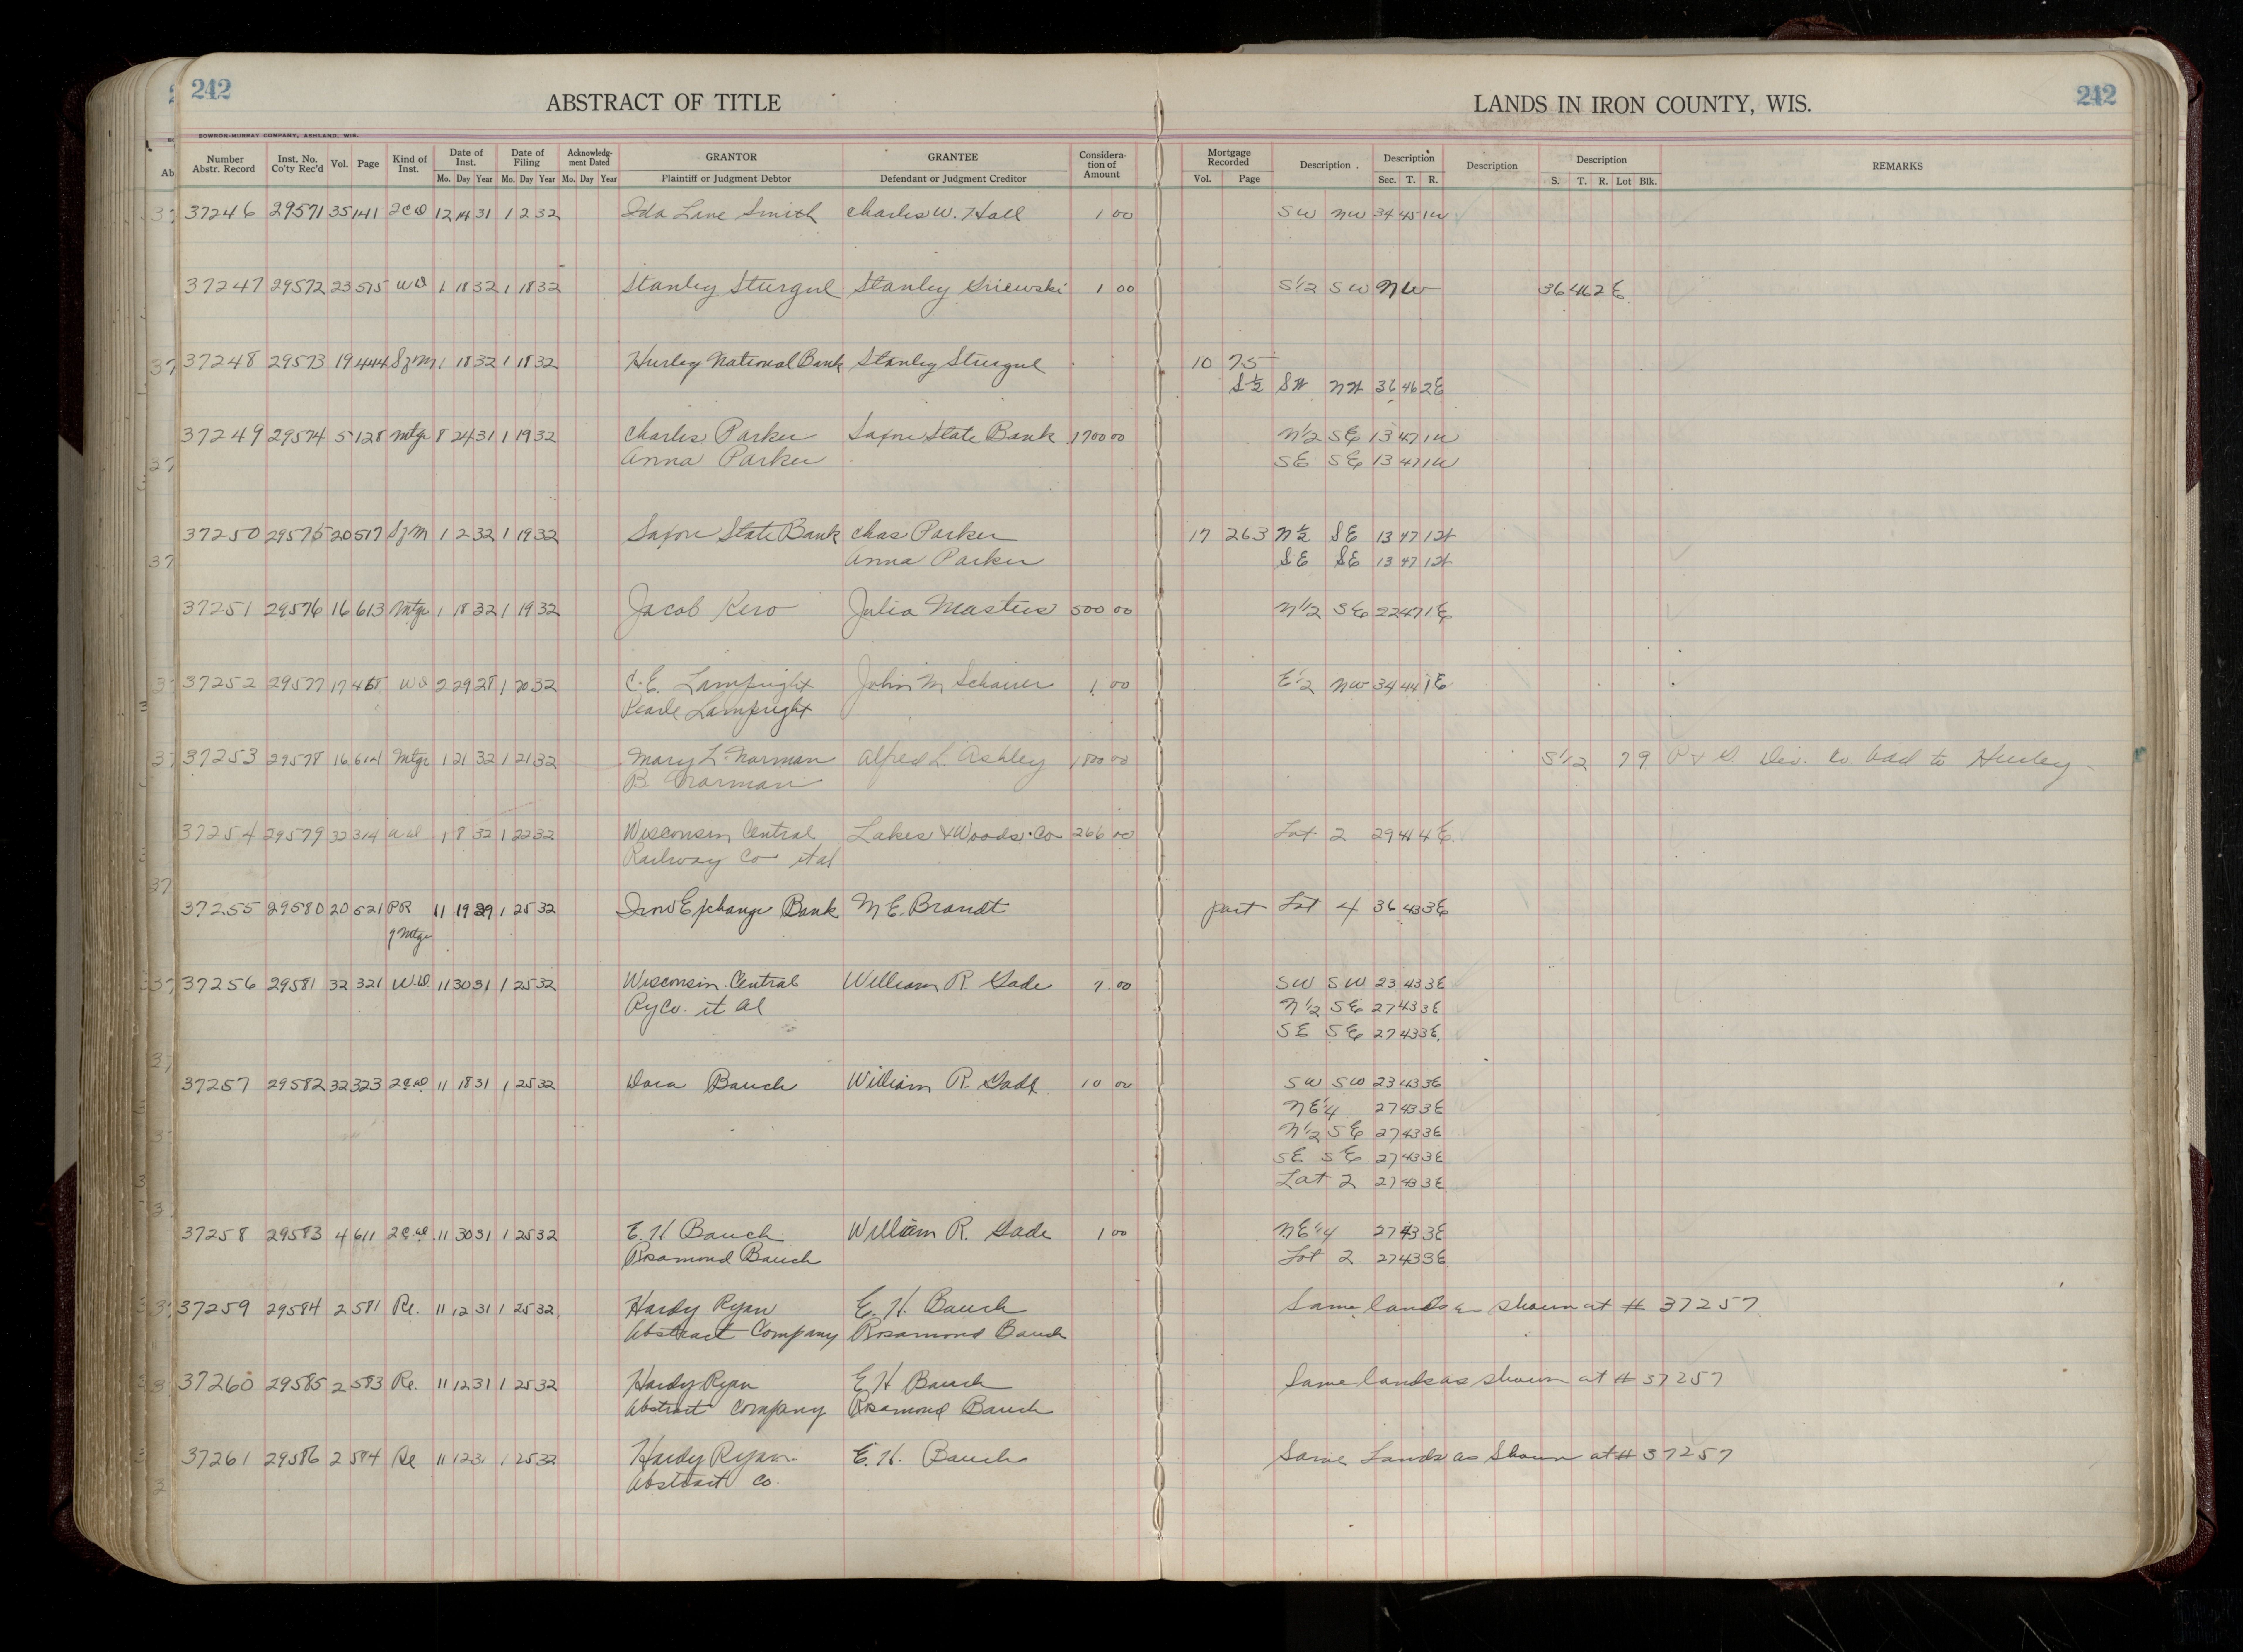 242
ABSTRACT OF TITLE
LANDS IN IRON COUNTY, WIS.
242
BOWRON-MURRAY COMPANY, ASHLAND, WIS.
Number Abstr. Record Inst. No. Co'ty Rec'd Vol. Page Kind of Inst. Date of Inst. Date of Filing Acknowledg-ment Dated GRANTOR GRANTEE Considera-tion of Amount Mortgage Recorded Description Description Description Description REMARKS
Mo. Day Year Mo. Day Year Mo. Day Year Plaintiff or Judgment Debtor Defendant or Judgment Creditor Vol. Page Sec. T. R. S. T. R. Lot Blk.
37246 29571 35 141 2CD 12 14 31 1 2 32 Ida Lane Smith Charles W. Hall 1 00 SW NW 34 45 1W
37247 29572 23 575 WD 1 18 32 1 18 32 Stanley Sturgul Stanley 1 00 S1/2 SW NW 36 46 2E
37248 29573 19 444 SfM 1 18 32 1 18 32 Hurley National Bank Stanley Sturgul 10 75
S½ SW NW 36 46 2E
37249 29574 5 128 Mtge 8 24 31 1 19 32 Charles Parker Saxon State Bank 1700 00 N1/2 SE 13 47 1W
Anna Parker SE SE 13 47 1W
37250 29575 20 517 SfM 1 2 32 1 19 32 Saxon State Bank Chas Parker 17 263 N½ SE 13 47 1W
Anna Parker SE SE 13 47 1W
37251 29576 16 613 Mtge 1 18 32 1 19 32 Jacob Kero Julia Masters 500 00 N1/2 SE 22 47 1E
37252 29577 17 468 WD 2 29 28 1 20 32 C. E. Lampright John M Schairer 1 00 E1/2 NW 34 44 1E
Pearle Lampright
37253 29578 16 614 Mtge 1 21 32 1 21 32 Mary L. Norman Alfred L. Ashley 1800 00 S1/2 79 Div. to Hurley
B Norman
37254 29579 32 314 1 8 32 1 22 32 Wisconsin Central Lakes & Woods Co 266 00 Lot 2 29 41 4E
Railway Co et al
37255 29580 20 521 PR 11 19 29 1 25 32 Iron Exchange Bank M E. Brandt part Lot 4 36 43 3E
of Mtge
37256 29581 32 321 W.D. 11 30 31 1 25 32 Wisconsin Central William R. Gade 7 00 SW SW 23 43 3E
Ry Co. et al N1/2 SE 27 43 3E
SE SE 27 43 3E
37257 29582 32 323 2CD 11 18 31 1 25 32 Dora Bauch William R. Gade 10 00 SW SW 23 43 3E
NE1/4 27 43 3E
N1/2 SE 27 43 3E
SE SE 27 43 3E
Lot 2 27 43 3E
37258 29583 4 611 2CD 11 30 31 1 25 32 E. H Bauch William R. Gade 1 00 NE1/4 27 43 3E
Rosamond Bauch Lot 2 27 43 3E
37259 29584 2 581 Re. 11 12 31 1 25 32 Hardy Ryan E. H. Bauch Same lands as shown at # 37257
Abstract Company Rosamond Bauch
37260 29585 2 583 Re. 11 12 31 1 25 32 Hardy Ryan E. H Bauch Same lands as shown at # 37257
Abstract Company Rosamond Bauch
37261 29586 2 584 Re 11 12 31 1 25 32 Hardy Ryan E. H. Bauch Same Lands as Shown at # 37257
Abstract Co.